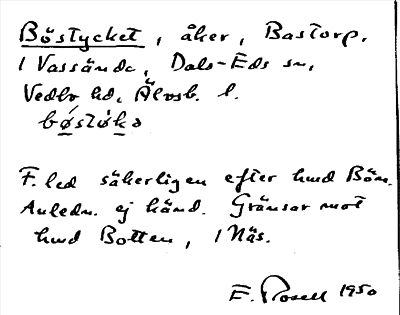 Böstycket, åker, Bastorp,
1 Vassända, Dals-Eds sn,
Vedbo hd, Älvsb. l.
bøstøkə
F. led säkerligen efter hmd Bön.
Anledn. ej känd. Gränsar mot
hmd Botten, 1 Näs.
E. Rosell 1950